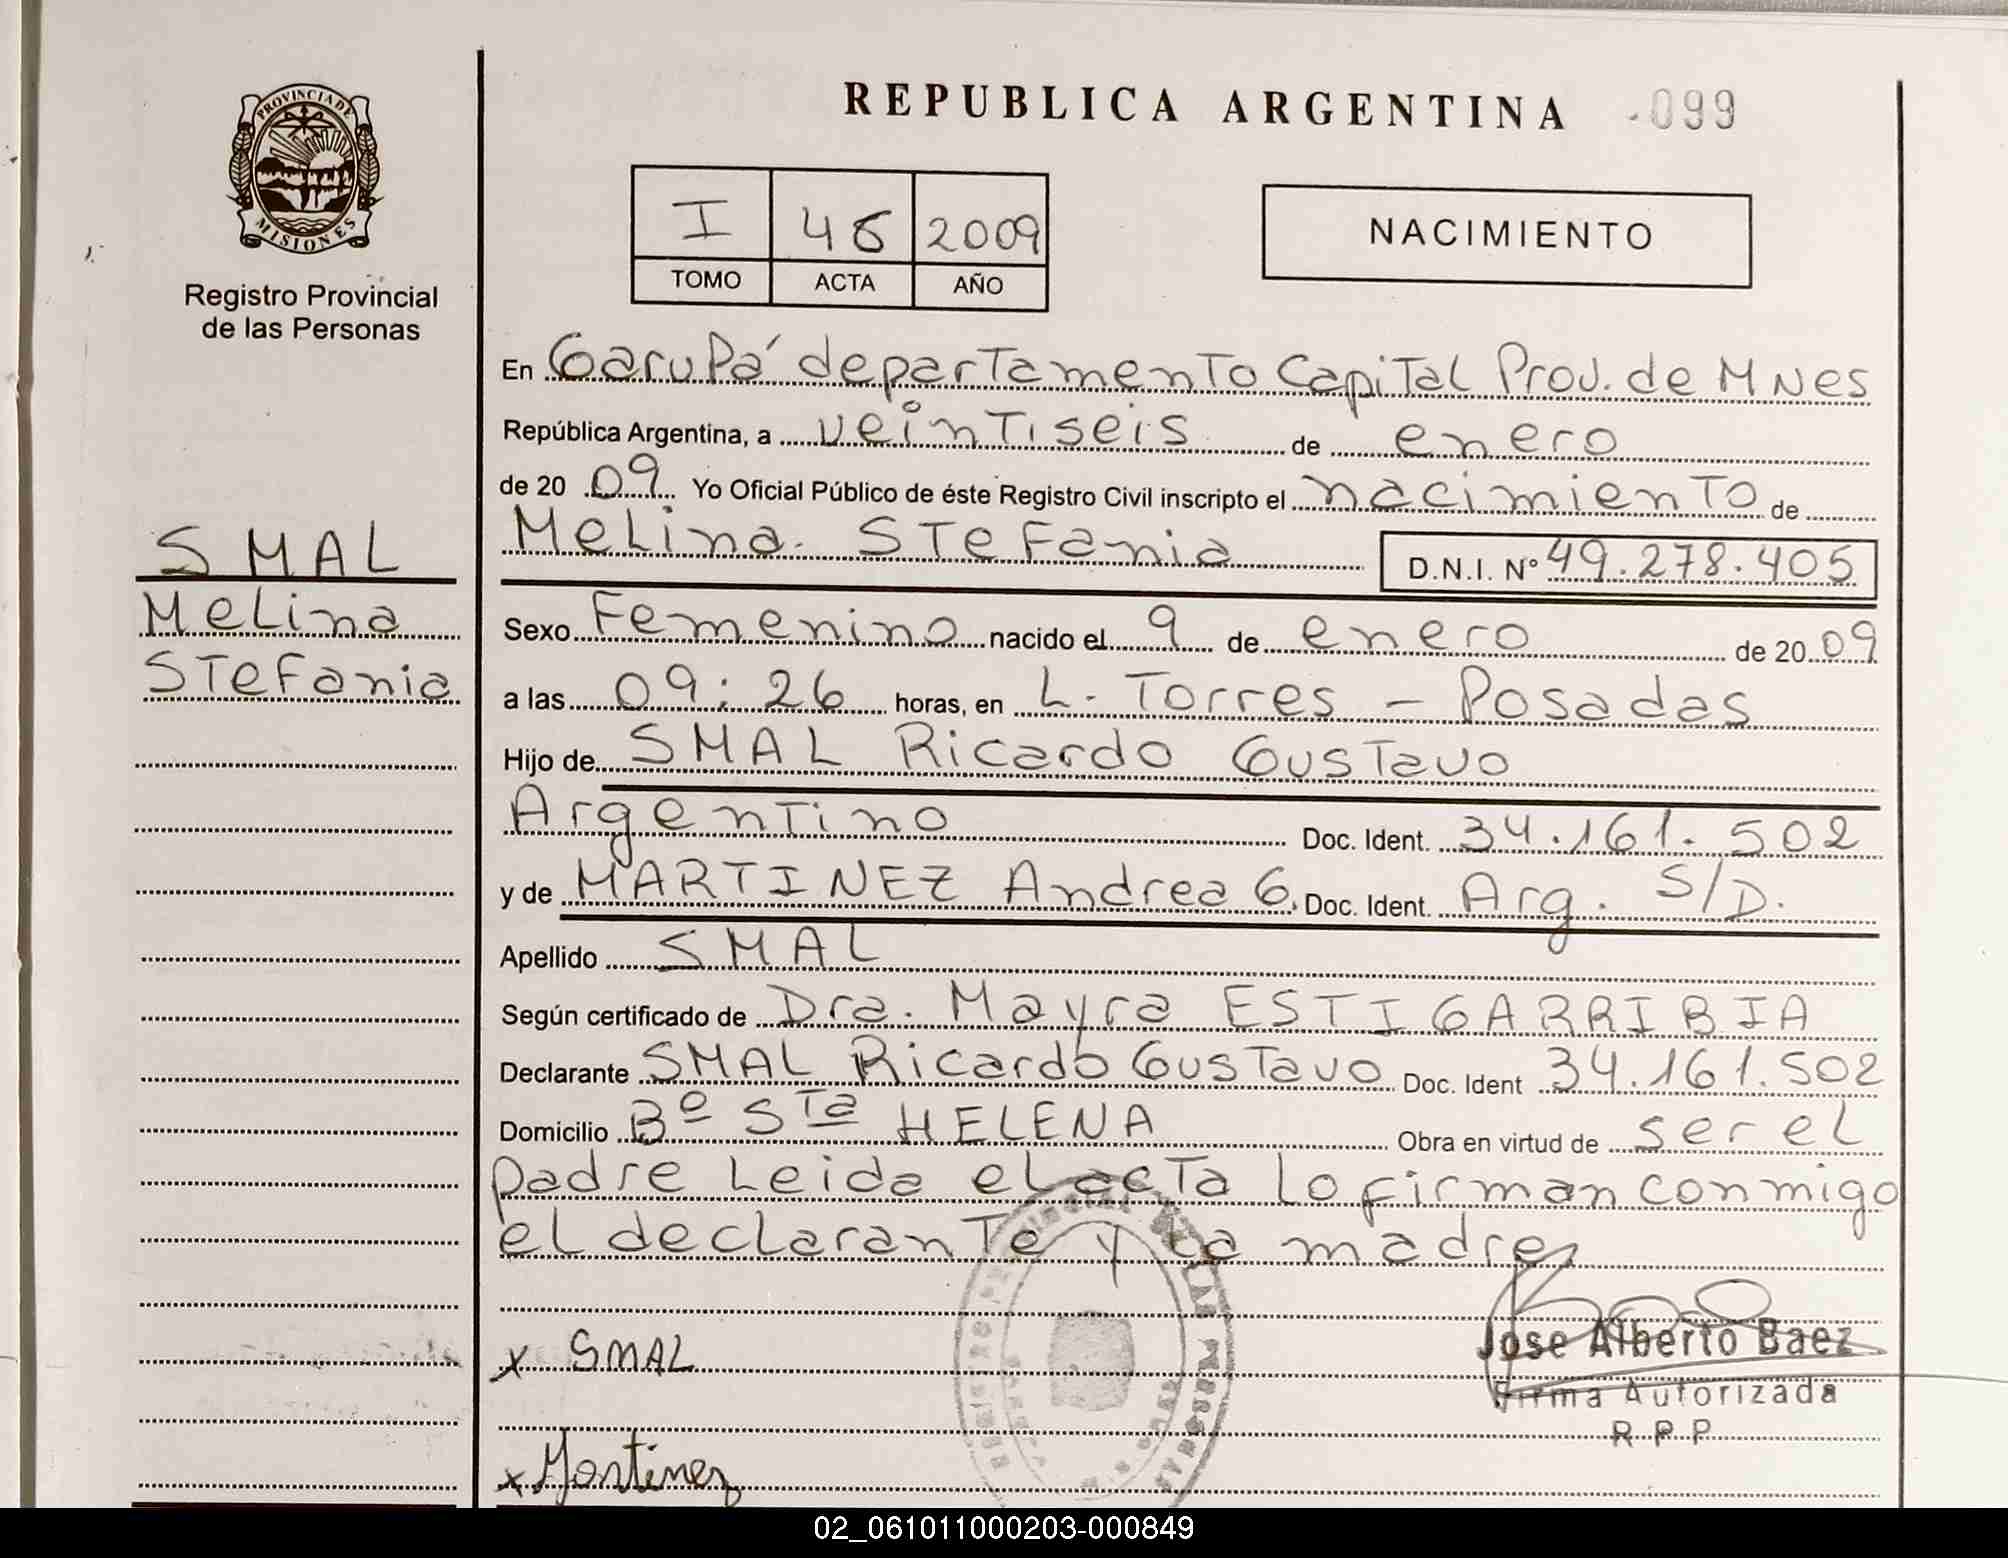 REPUBLICA ARGENTINA
099
PROVINCIA DE
MISIONES
Registro Provincial
de las Personas
I 2009
TOMO ACTA AÑO
NACIMIENTO
En Garupá departamento Capital Prov. de MNes
República Argentina, a veintiseis de enero
de 2009 Yo Oficial Público de éste Registro Civil inscripto el nacimiento de
Melina Stefania D.N.I. Nº 49.278.405
SMAL
Melina
Stefania
Sexo Femenino nacido el 9 de enero de 2009
a las 09:26 horas, en L. Torres - Posadas
Hijo de SMAL Ricardo Gustavo
Argentino Doc. Ident. 34.161.502
y de MARTINEZ Andrea G. Doc. Ident. Arg. S/D.
Apellido SMAL
Según certificado de Dra. Mayra ESTIGARRIBIA
Declarante SMAL Ricardo Gustavo Doc. Ident 34.161.502
Domicilio Bº Sta HELENA Obra en virtud de ser el
padre Leida el acta lo firman conmigo
el declarante y la madre
x SMAL
Jose Alberto Baez
Firma Autorizada
R P P
x Martinez
02_061011000203-000849